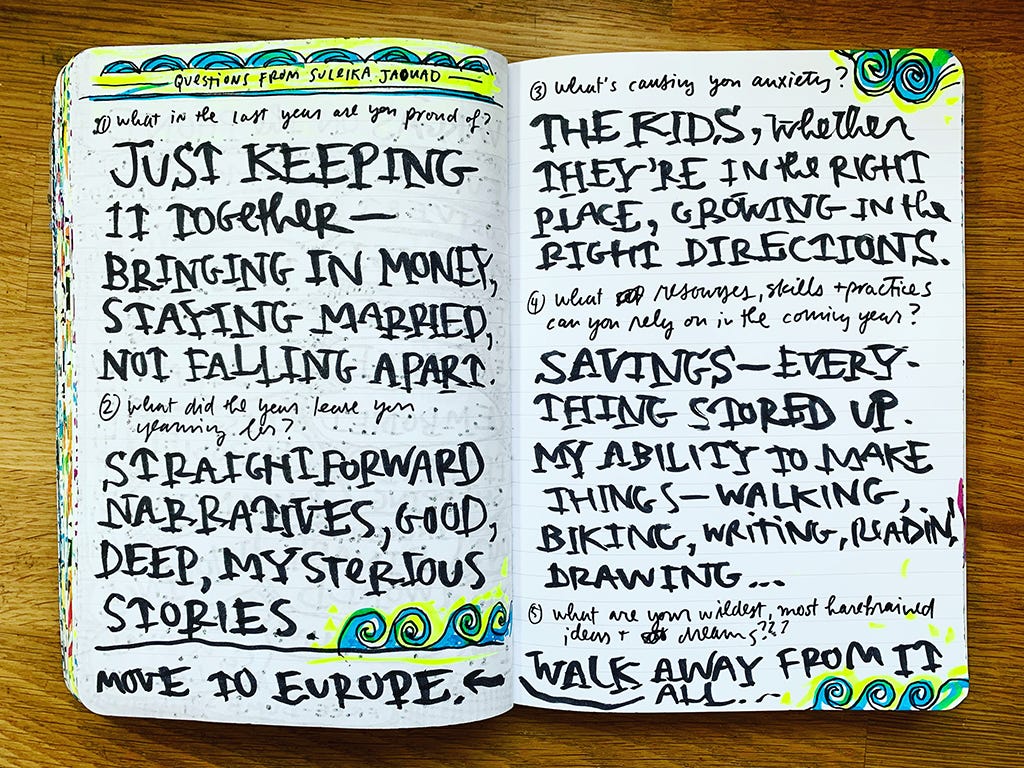 QUESTIONS FROM SULEIKA JAOUAD
1) what in the last year are you proud of?
JUST KEEPING
IT TOGETHER —
BRINGING IN MONEY,
STAYING MARRIED,
NOT FALLING APART.
2) what did the year leave you
yearning for?
STRAIGHTFORWARD
NARRATIVES, GOOD,
DEEP, MYSTERIOUS
STORIES.
MOVE TO EUROPE. ←
3) what's causing you anxiety?
THE KIDS, whether
THEY'RE IN the RIGHT
PLACE, GROWING IN the
RIGHT DIRECTIONS.
4) what resources, skills + practices
can you rely on in the coming year?
SAVINGS — EVERY-
THING STORED UP.
MY ABILITY TO MAKE
THINGS — WALKING,
BIKING, WRITING, READIN'
DRAWING...
5) what are your wildest, most harebrained
ideas + dreams???
WALK AWAY FROM IT
ALL...